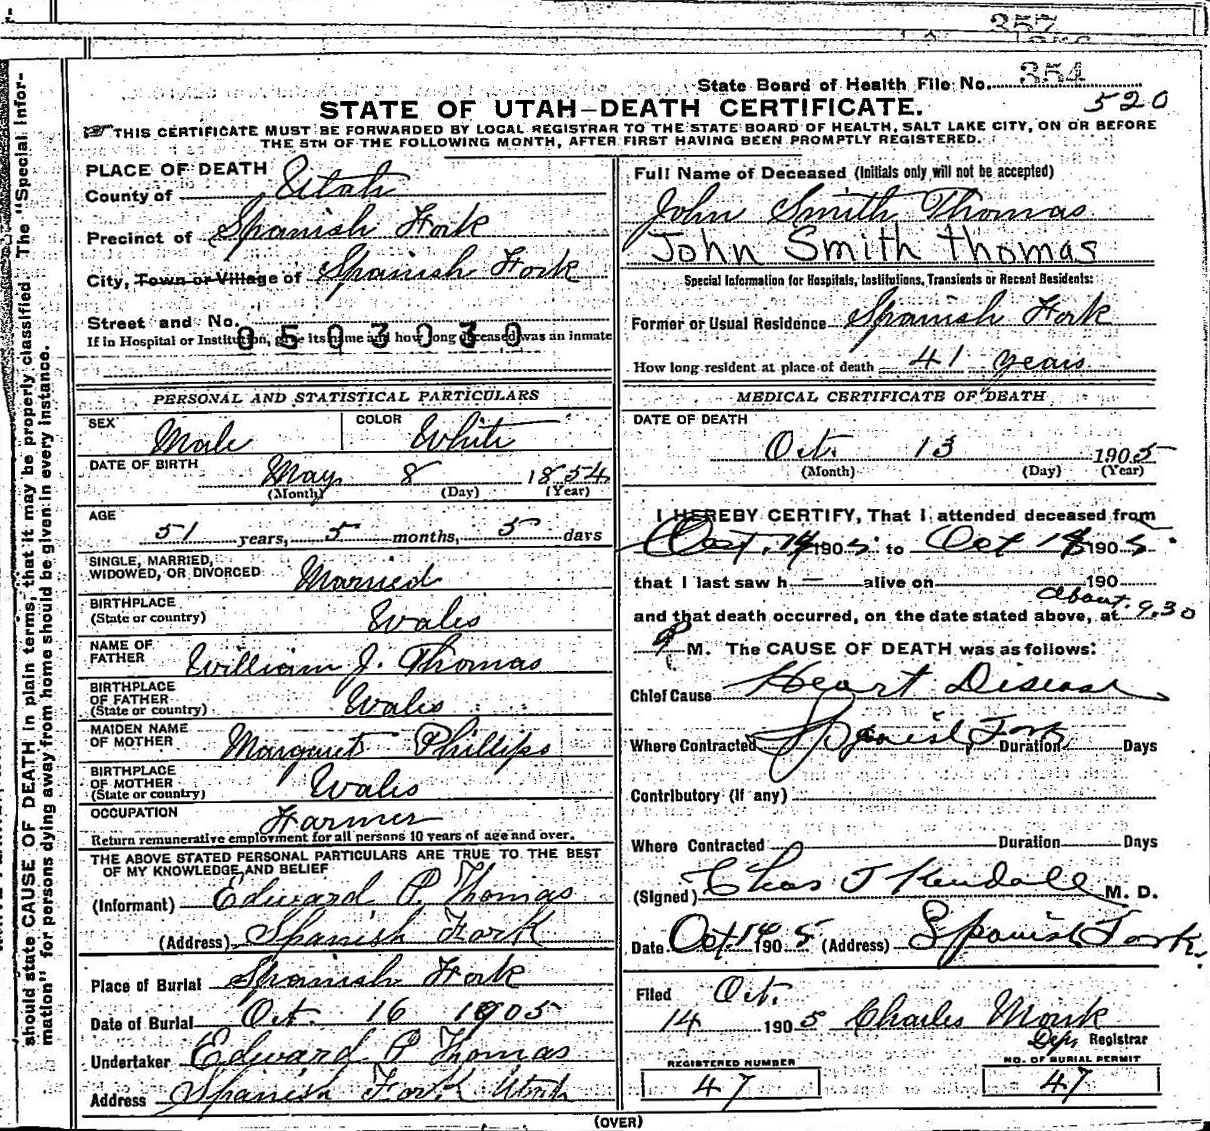 357
State Board of Health File No. 354
520
STATE OF UTAH—DEATH CERTIFICATE.
THIS CERTIFICATE MUST BE FORWARDED BY LOCAL REGISTRAR TO THE STATE BOARD OF HEALTH, SALT LAKE CITY, ON OR BEFORE
THE 5TH OF THE FOLLOWING MONTH, AFTER FIRST HAVING BEEN PROMPTLY REGISTERED.
should state CAUSE OF DEATH in plain terms, that it may be properly classified. The "Special Infor-
mation" for persons dying away from home should be given in every instance.
PLACE OF DEATH
County of Utah
Precinct of Spanish Fork
City, Town or Village of Spanish Fork
Street and No.
0503030
If in Hospital or Institution, give its name and how long deceased was an inmate
PERSONAL AND STATISTICAL PARTICULARS
SEX Male COLOR White
DATE OF BIRTH May 8 1854
(Month) (Day) (Year)
AGE
51 years, 5 months, 5 days
SINGLE, MARRIED,
WIDOWED, OR DIVORCED Married
BIRTHPLACE
(State or country) Wales
NAME OF
FATHER William J. Thomas
BIRTHPLACE
OF FATHER
(State or country) Wales
MAIDEN NAME
OF MOTHER Margaret Phillips
BIRTHPLACE
OF MOTHER
(State or country) Wales
OCCUPATION Farmer
Return remunerative employment for all persons 10 years of age and over.
THE ABOVE STATED PERSONAL PARTICULARS ARE TRUE TO THE BEST
OF MY KNOWLEDGE AND BELIEF
(Informant) Edward P. Thomas
(Address) Spanish Fork
Place of Burial Spanish Fork
Date of Burial Oct. 16 1905
Undertaker Edward P Thomas
Address Spanish Fork Utah
Full Name of Deceased (Initials only will not be accepted)
John Smith Thomas
John Smith Thomas
Special Information for Hospitals, Institutions, Transients or Recent Residents:
Former or Usual Residence Spanish Fork
How long resident at place of death 41 years
MEDICAL CERTIFICATE OF DEATH
DATE OF DEATH
Oct. 13 1905
(Month) (Day) (Year)
I HEREBY CERTIFY, That I attended deceased from
Oct. 14 1905 to Oct 14 1905.
that I last saw h — alive on 190
and that death occurred, on the date stated above, at about 9.30
P M. The CAUSE OF DEATH was as follows:
Chief Cause Heart Disease
Where Contracted Spanish Fork Duration Days
Contributory (If any)
Where Contracted Duration Days
(Signed) Chas J Kendall M. D.
Date Oct. 14 1905 (Address) Spanish Fork.
Filed Oct.
14 1905 Charles Monk
Dep. Registrar
REGISTERED NUMBER
47
NO. OF BURIAL PERMIT
47
(OVER)